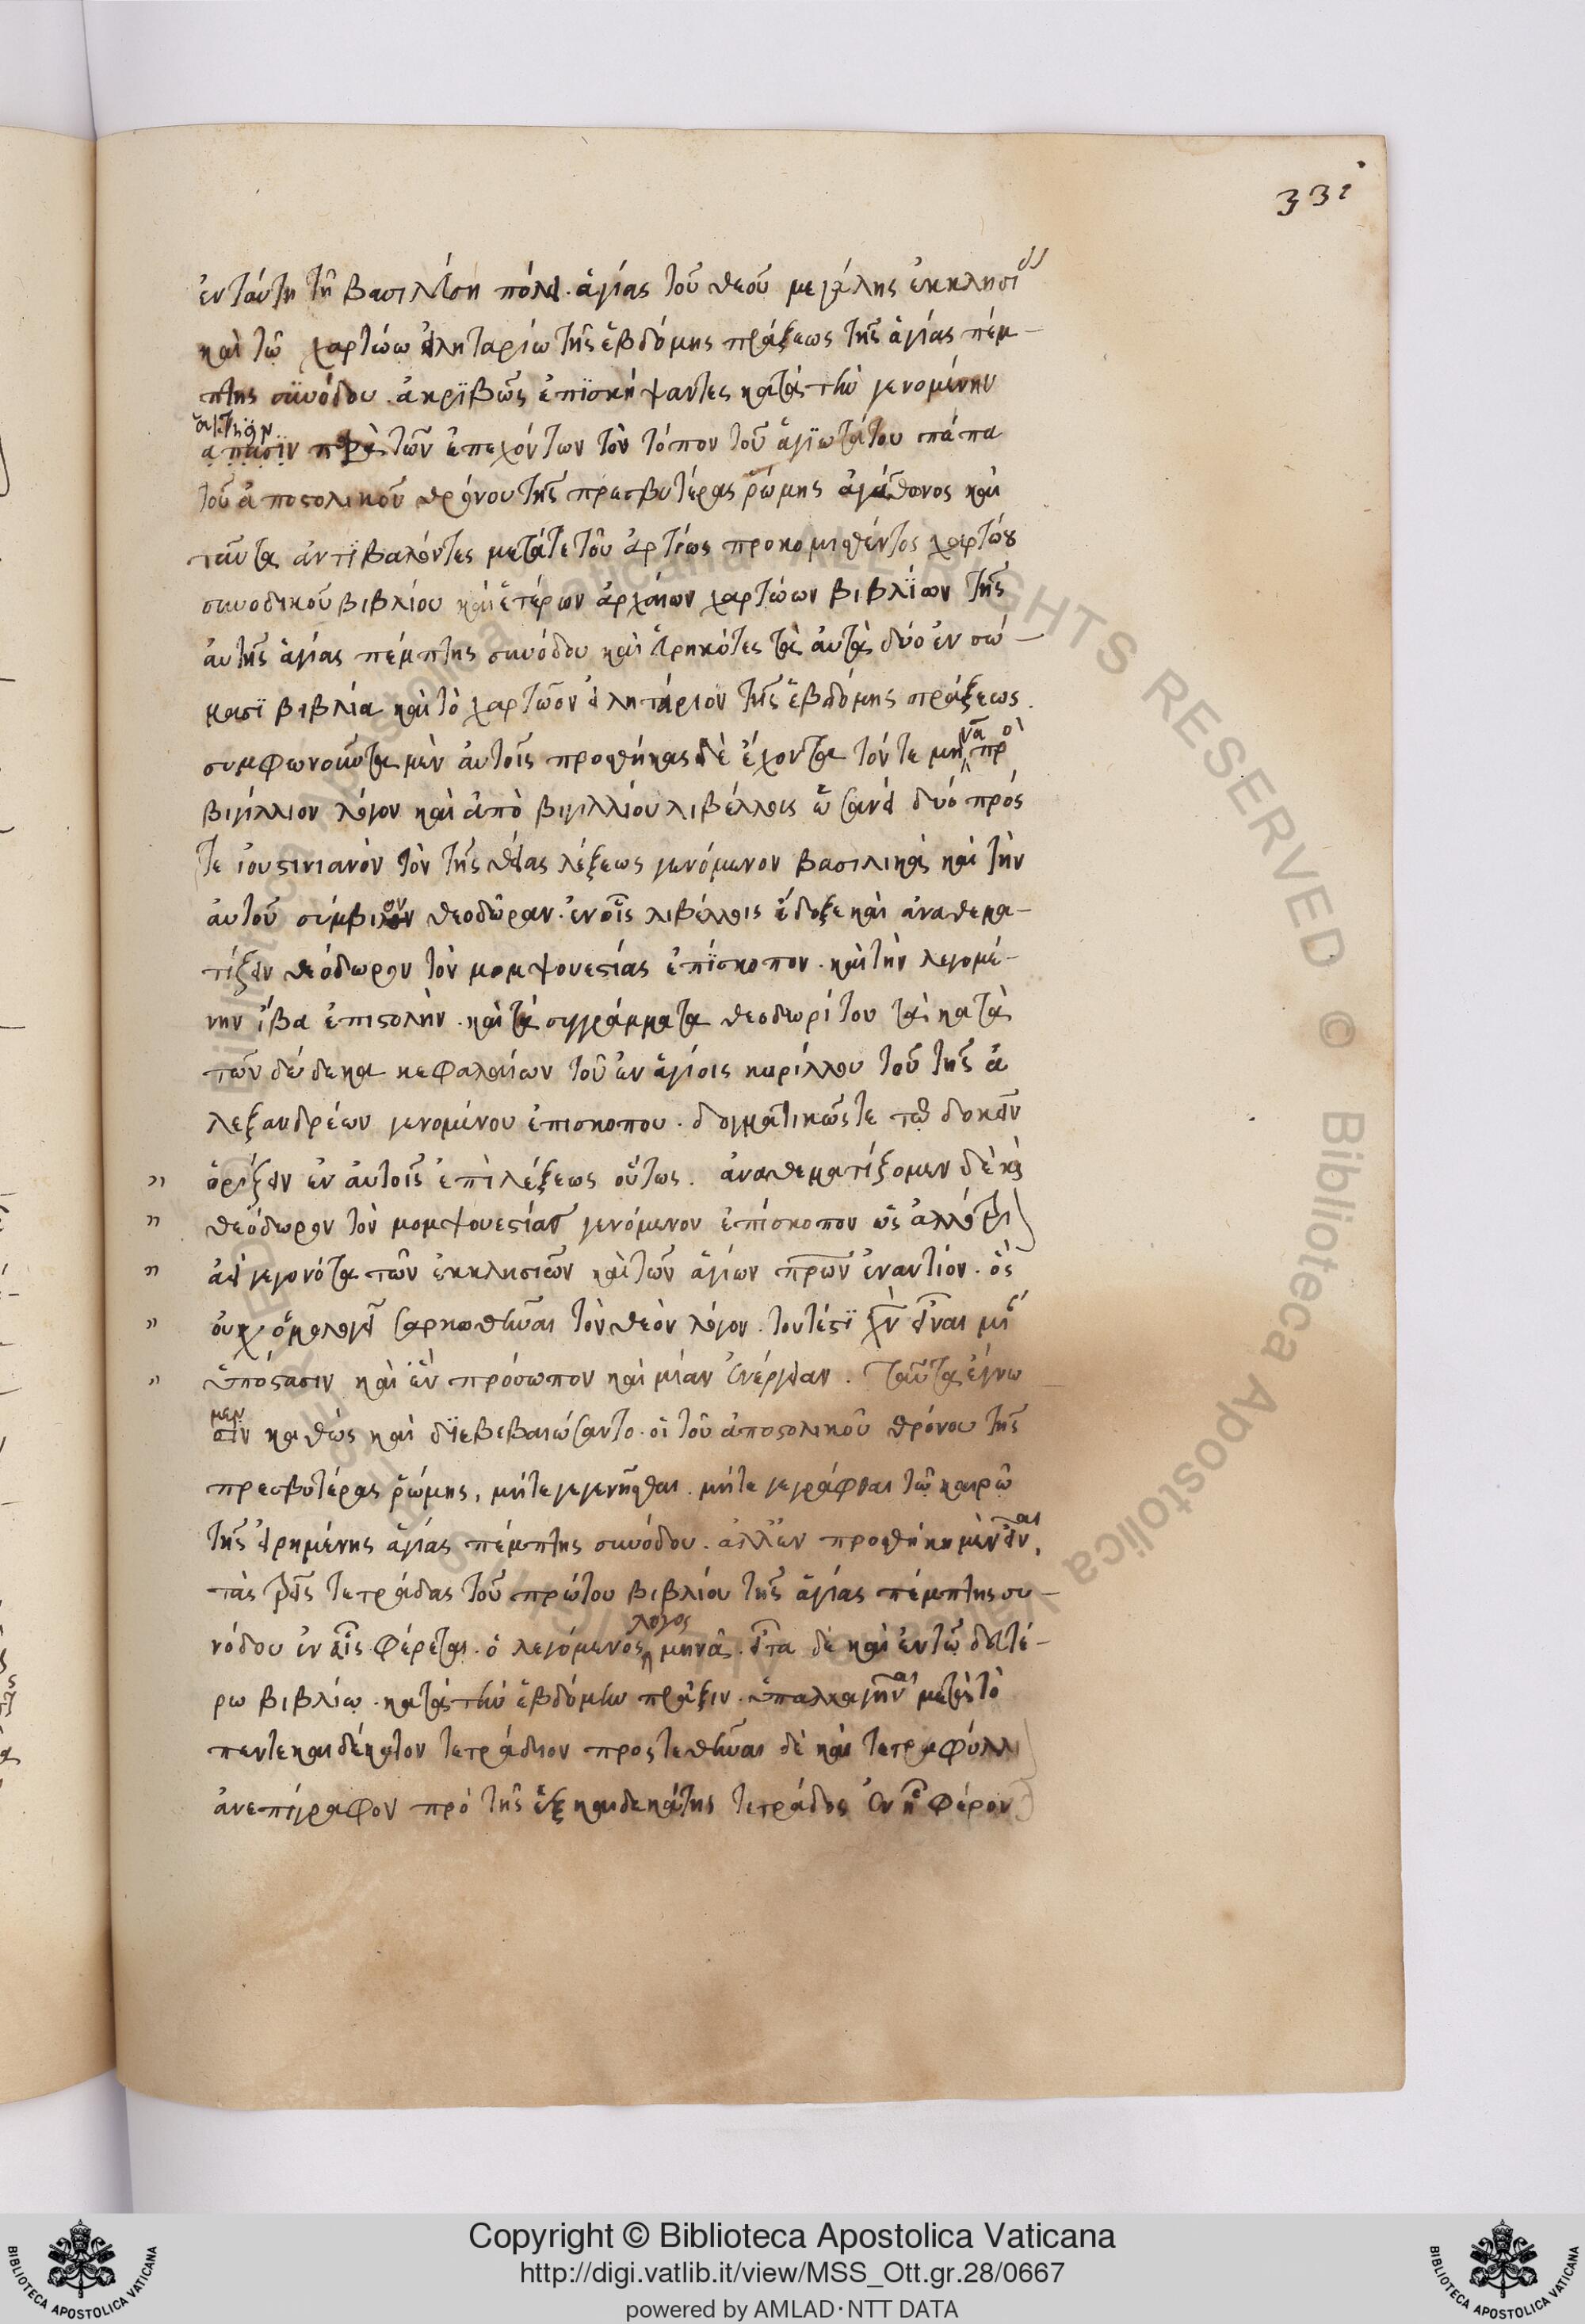 331
ἐν ταύτη τῆ βασιλίδι πόλει. ἁγίας τοῦ θεοῦ μεγάλης ἐκκλησίας
καὶ τῶ χαρτώω εἰληταρίω τῆς ἑβδόμης πράξεως τῆς ἁγίας πέμ-
πτης συνόδου. ἀκρϊβῶς ἐπϊσκήψαντες κατὰ τὴν γενομένην
αἴτησϊν
ἅπασϊν παρὰ τῶν ἐπεχόντων τὸν τόπον τοῦ ἁγϊωτάτου πάπα
τοῦ ἀποστολικοῦ θρόνου τῆς πρεσβυτέρας ῥώμης ἀγάθωνος καὶ
ταῦτα ἀντϊβαλόντες μετά τε τοῦ ἀρτίως προκομισθέντος χαρτώου
συνοδικοῦ βιβλίου καὶ ἑτέρων ἀρχαίων χαρτώων βιβλίων τῆς
αὐτῆς ἁγίας πέμπτης συνόδου καὶ εὑρηκότες τὰ αὐτὰ δύο ἐν σώ-
μασϊ βιβλία καὶ τὸ χαρτῶον εἰλητάριον τῆς ἑβδόμης πράξεως.
συμφωνοῦντα μὲν αὐτοῖς προσθήκας δὲ ἔχοντα τόν τε μηνᾶ πρὸς
βιγίλλιον λόγον καὶ ἀπὸ βιγιλλίου λιβέλλοις ὡσανεὶ δυό πρός
τε ἰουστινιανὸν τὸν τῆς θείας λέξεως γενόμενον βασιλικὰ καὶ τὴν
αὐτοῦ σύμβιον θεοδῶραν. ἐν οἷς λιβέλλοις ἔδοξε καὶ ἀναθεμα-
τίζειν θεόδωρον τὸν μομψουεστίας ἐπϊσκοπον. καὶ τὴν λεγομέ-
νην ἴβα ἐπιστολὴν. καὶ τὰ συγγράμματα θεοδωρίτου τὰ κατὰ
τῶν δώδεκα κεφαλαίων τοῦ ἐν ἁγίοις κυρίλλου τοῦ τῆς ἀ
λεξανδρέων γενομένου ἐπισκοπου. δογματικῶς τε τῶ δοκεῖν
ὁρίζειν ἐν αὐτοῖς ἐπὶ λέξεως οὕτως. ἀναθεματίζομεν δὲ καὶ
θεόδωρον τὸν μομψουεστίας γενόμενον ἐπίσκοπον ὡς ἀλλότρι
ἀεὶ γεγονότα τῶν ἐκκλησιῶν καὶ τῶν ἁγίων πρων ἐναντίον. ὅς
οὐχ ὁμολογεῖ σαρκωθῆναι τὸν θεὸν λόγον. τουτέστϊ χν εἶναι μί
ὑπόστασιν καὶ ἓν πρόσωπον καὶ μίαν ἐνέργειαν. ταῦτα ἔγνω
μεν
σιν καθὼς καὶ δϊεβεβαιώσαντο. οἱ τοῦ ἀποστολικοῦ θρόνου τῆς
πρεσβυτέρας ῥώμης, μήτε γεγενῆσθαι. μήτε γεγράφθαι τῶ καιρῶ
τῆς εἰρημένης ἁγίας πέμπτης συνόδου. ἀλλ' ἐν προσθήκη μὲν εἶναι,
τὰς τρεῖς τετράδας τοῦ πρώτου βιβλίου τῆς ἁγίας πέμπτης συ-
νόδου ἐν αἷς φέρεται. ὁ λεγόμενος λόγος μηνᾶ. εἶτα δὲ καὶ ἐν τῶ δευτέ-
ρω βιβλίω. κατὰ τὴν ἑβδόμην πρᾶξιν. ὑπαλλαγῆναι μετὰ τὸ
πεντεκαιδέκατον τετράδιον προστεθῆναι δὲ καὶ τετράφυλλ
ἀνεπίγραφον πρὸ τῆς ἑξκαιδεκάτης τετράδος ἐν ἧ φέρον
Copyright © Biblioteca Apostolica Vaticana
http://digi.vatlib.it/view/MSS_Ott.gr.28/0667
powered by AMLAD·NTT DATA